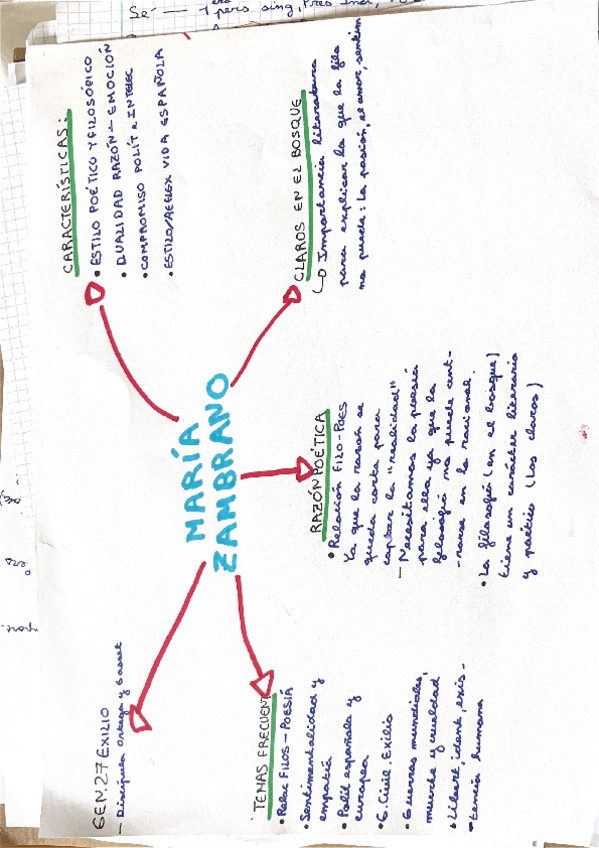 MARÍA
ZAMBRANO
GEN.27 EXILIO
– Discípula Ortega y Gasset
CARACTERÍSTICAS:
• ESTILO POÉTICO Y FILOSÓFICO
• DUALIDAD RAZÓN – EMOCIÓN
• COMPROMISO POLÍT e INTELEC
• ESTILO/REFLEX VIDA ESPAÑOLA
TEMAS FRECUENT
• Relac FILOS – POESÍA
• Sentimentalidad y
empatía
• Polít española y
europea
• G. Civil, Exilio
• Guerras mundiales,
muerte y crueldad
• Libert, ident, exis-
-tencia humana
RAZÓN POÉTICA
• Relación FILO-POES
Ya que la razón se
queda corta para
captar la "realidad"
– Necesitamos la poesía
para ello ya que la
filosofía no puede cent-
-rarse en lo racional.
• La filosofía (en el bosque)
tiene un carácter literario
y poético (Los claros)
CLAROS EN EL BOSQUE
Importancia literatura
para explicar lo que la filo
no puede: La pasión, el amor, sentim
Se — 1 pers sing, Pres Ind,